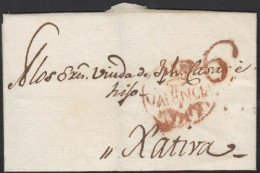 A los Sres. Viuda de Jph. Casa é
hijo
VALENCIA
6
Xativa